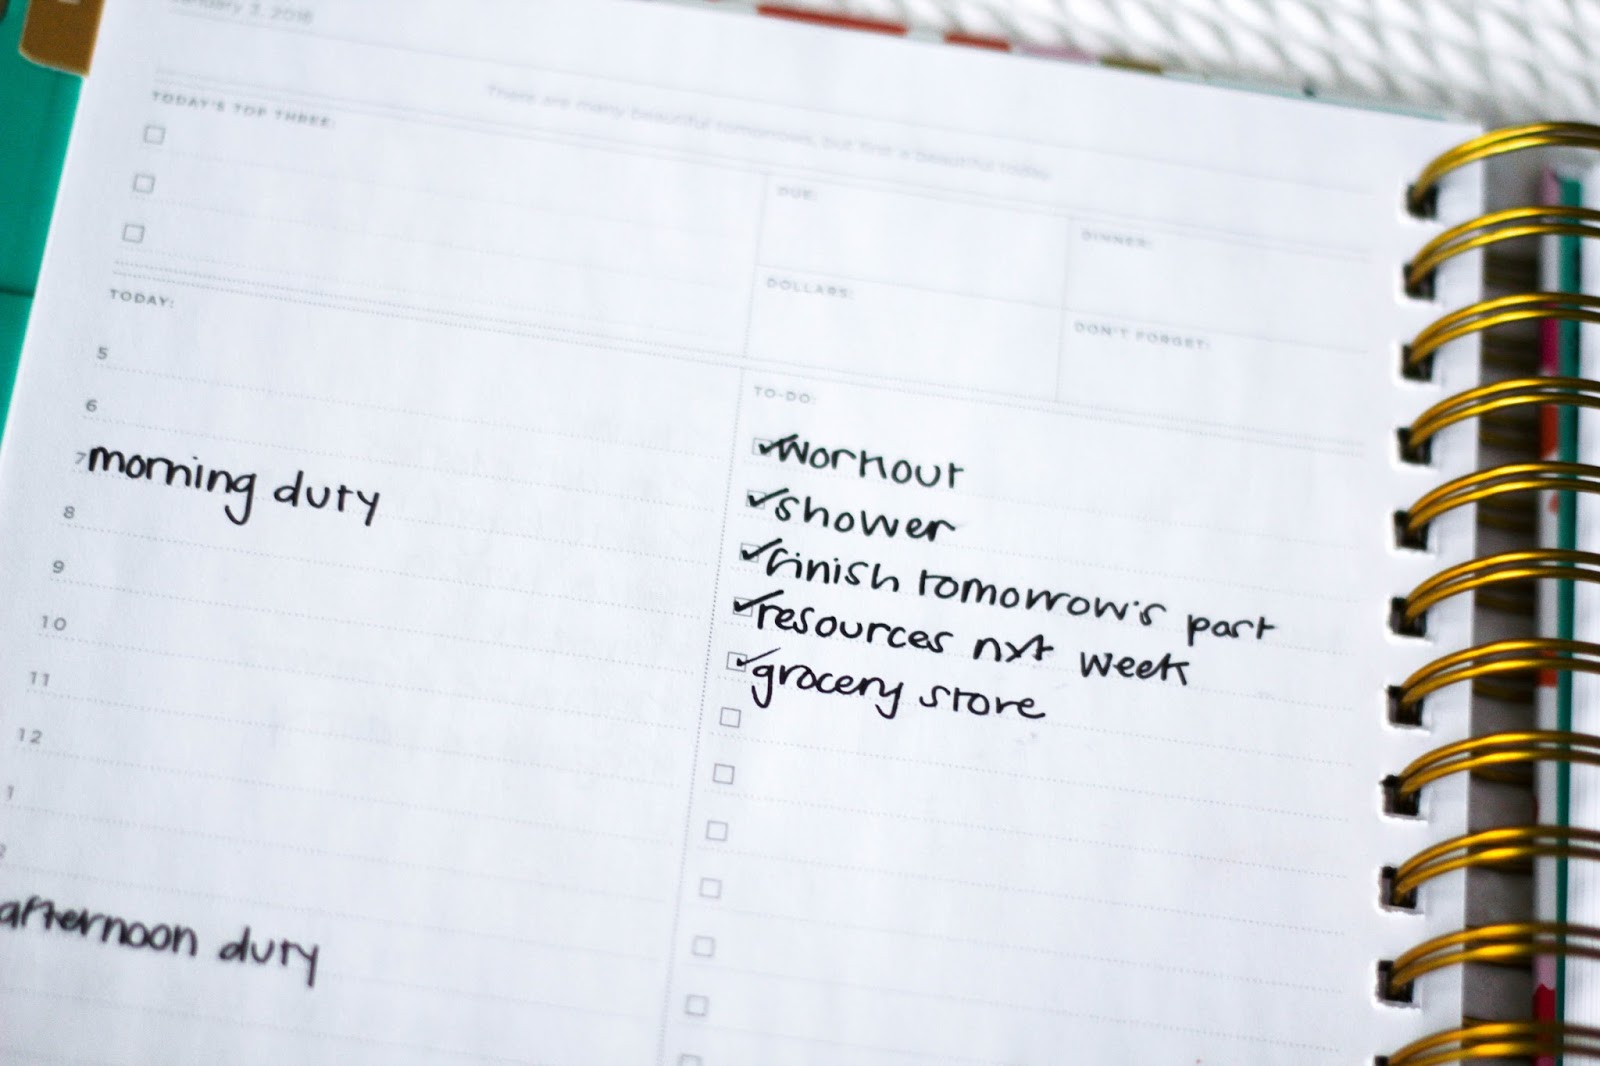 January 3, 2018
There are many beautiful tomorrows, but first a beautiful today.
TODAY'S TOP THREE:
DUE:
DINNER:
DOLLARS:
DON'T FORGET:
TODAY:
5
6
7 morning duty
8
9
10
11
12
1
2
afternoon duty
TO-DO:
workout
shower
finish tomorrow's part
resources nxt week
grocery store